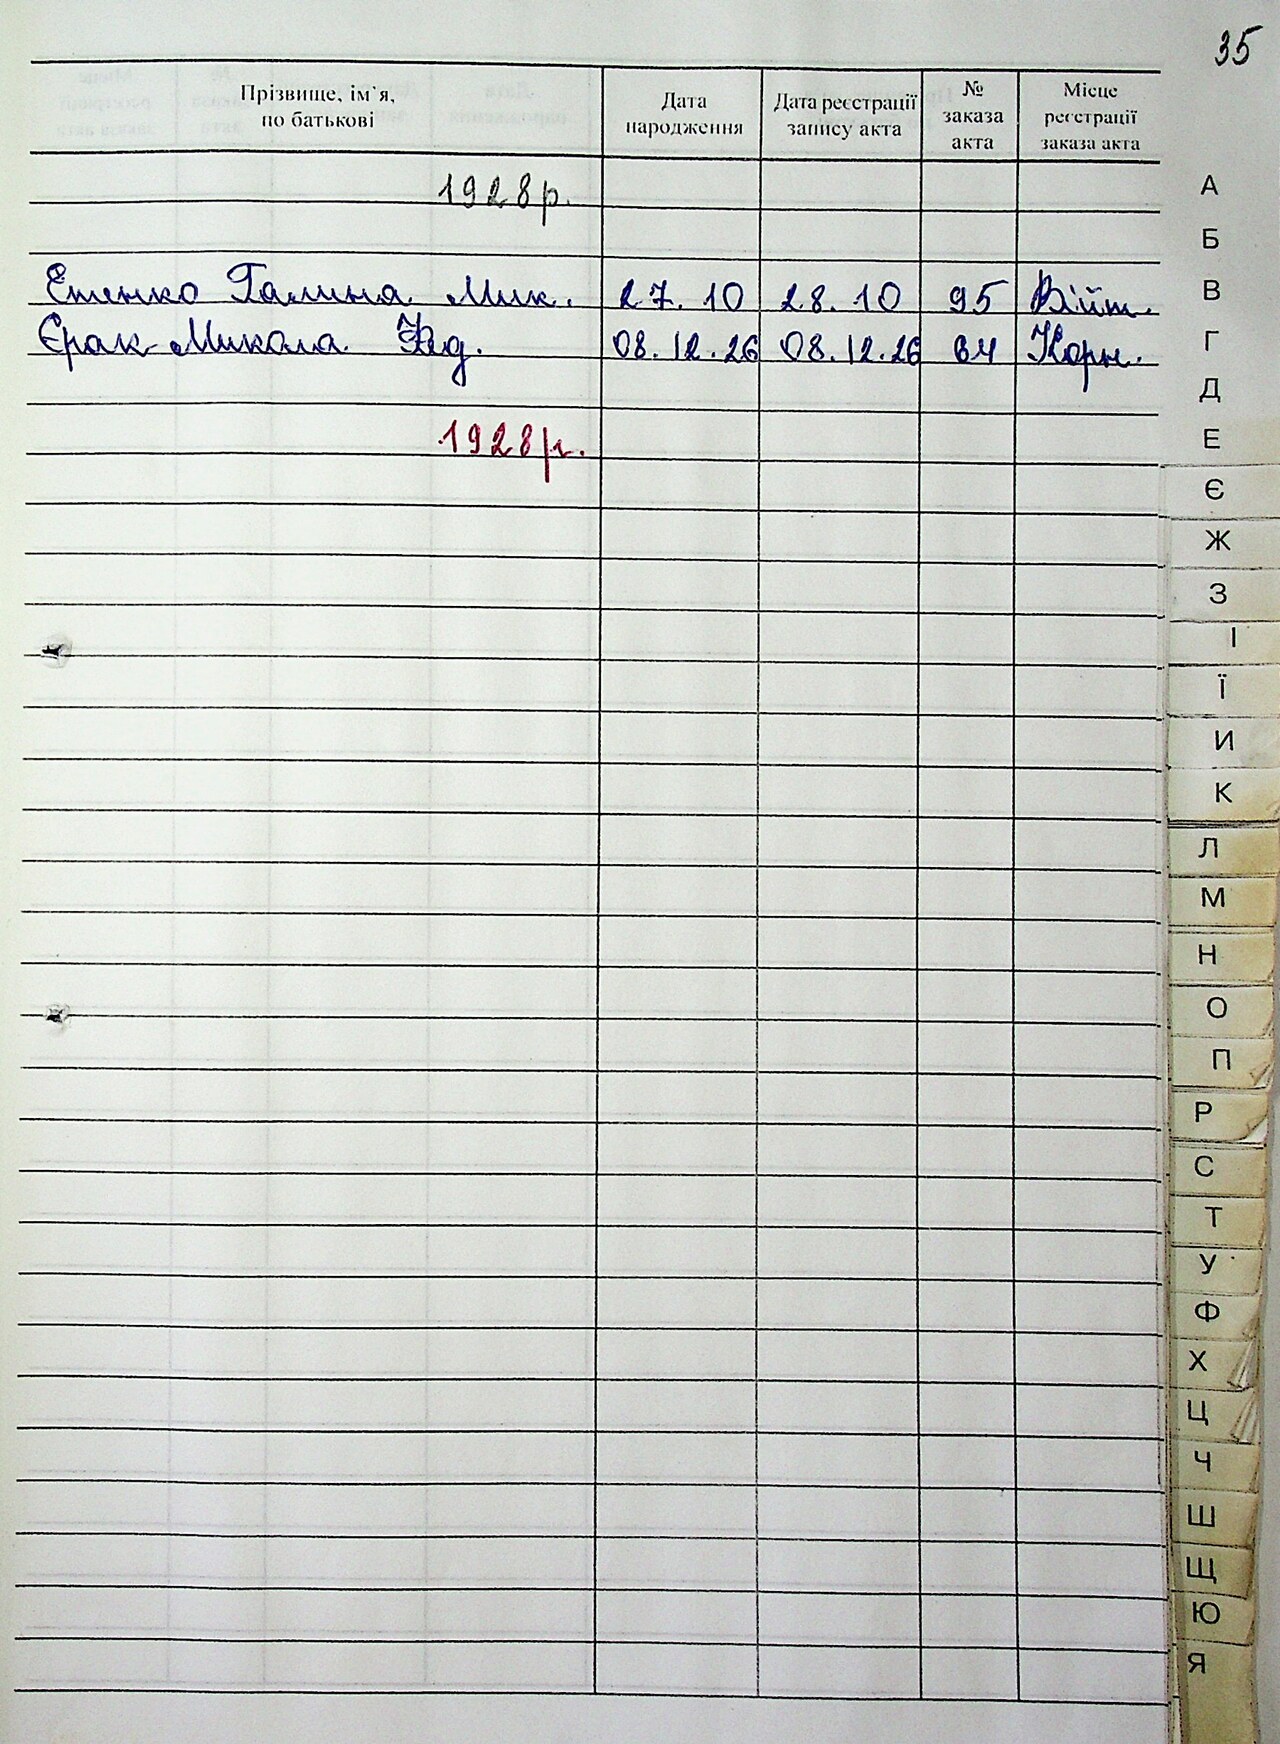 35
Прізвище, ім'я, по батькові Дата народження Дата реєстрації запису акта № заказа акта Місце реєстрації заказа акта
1928р.
Єтенко Галина Мик. 27.10 28.10 95 Війт.
Єрак Микола 08.12.26 08.12.26 64 Корн.
1928р.
А
Б
В
Г
Д
Е
Є
Ж
З
І
Ї
И
К
Л
М
Н
О
П
Р
С
Т
У
Ф
Х
Ц
Ч
Ш
Щ
Ю
Я